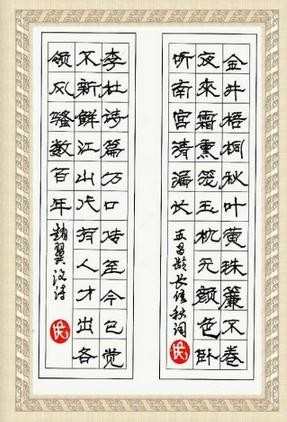 金井梧桐秋叶黄珠簾不卷
夜來霜熏笼玉枕无颜色卧
听南宫清漏长 王昌龄长信秋词
李杜诗篇万口传至今已觉
不新鲜江山代有人才出各
领风骚数百年 赵翼论诗